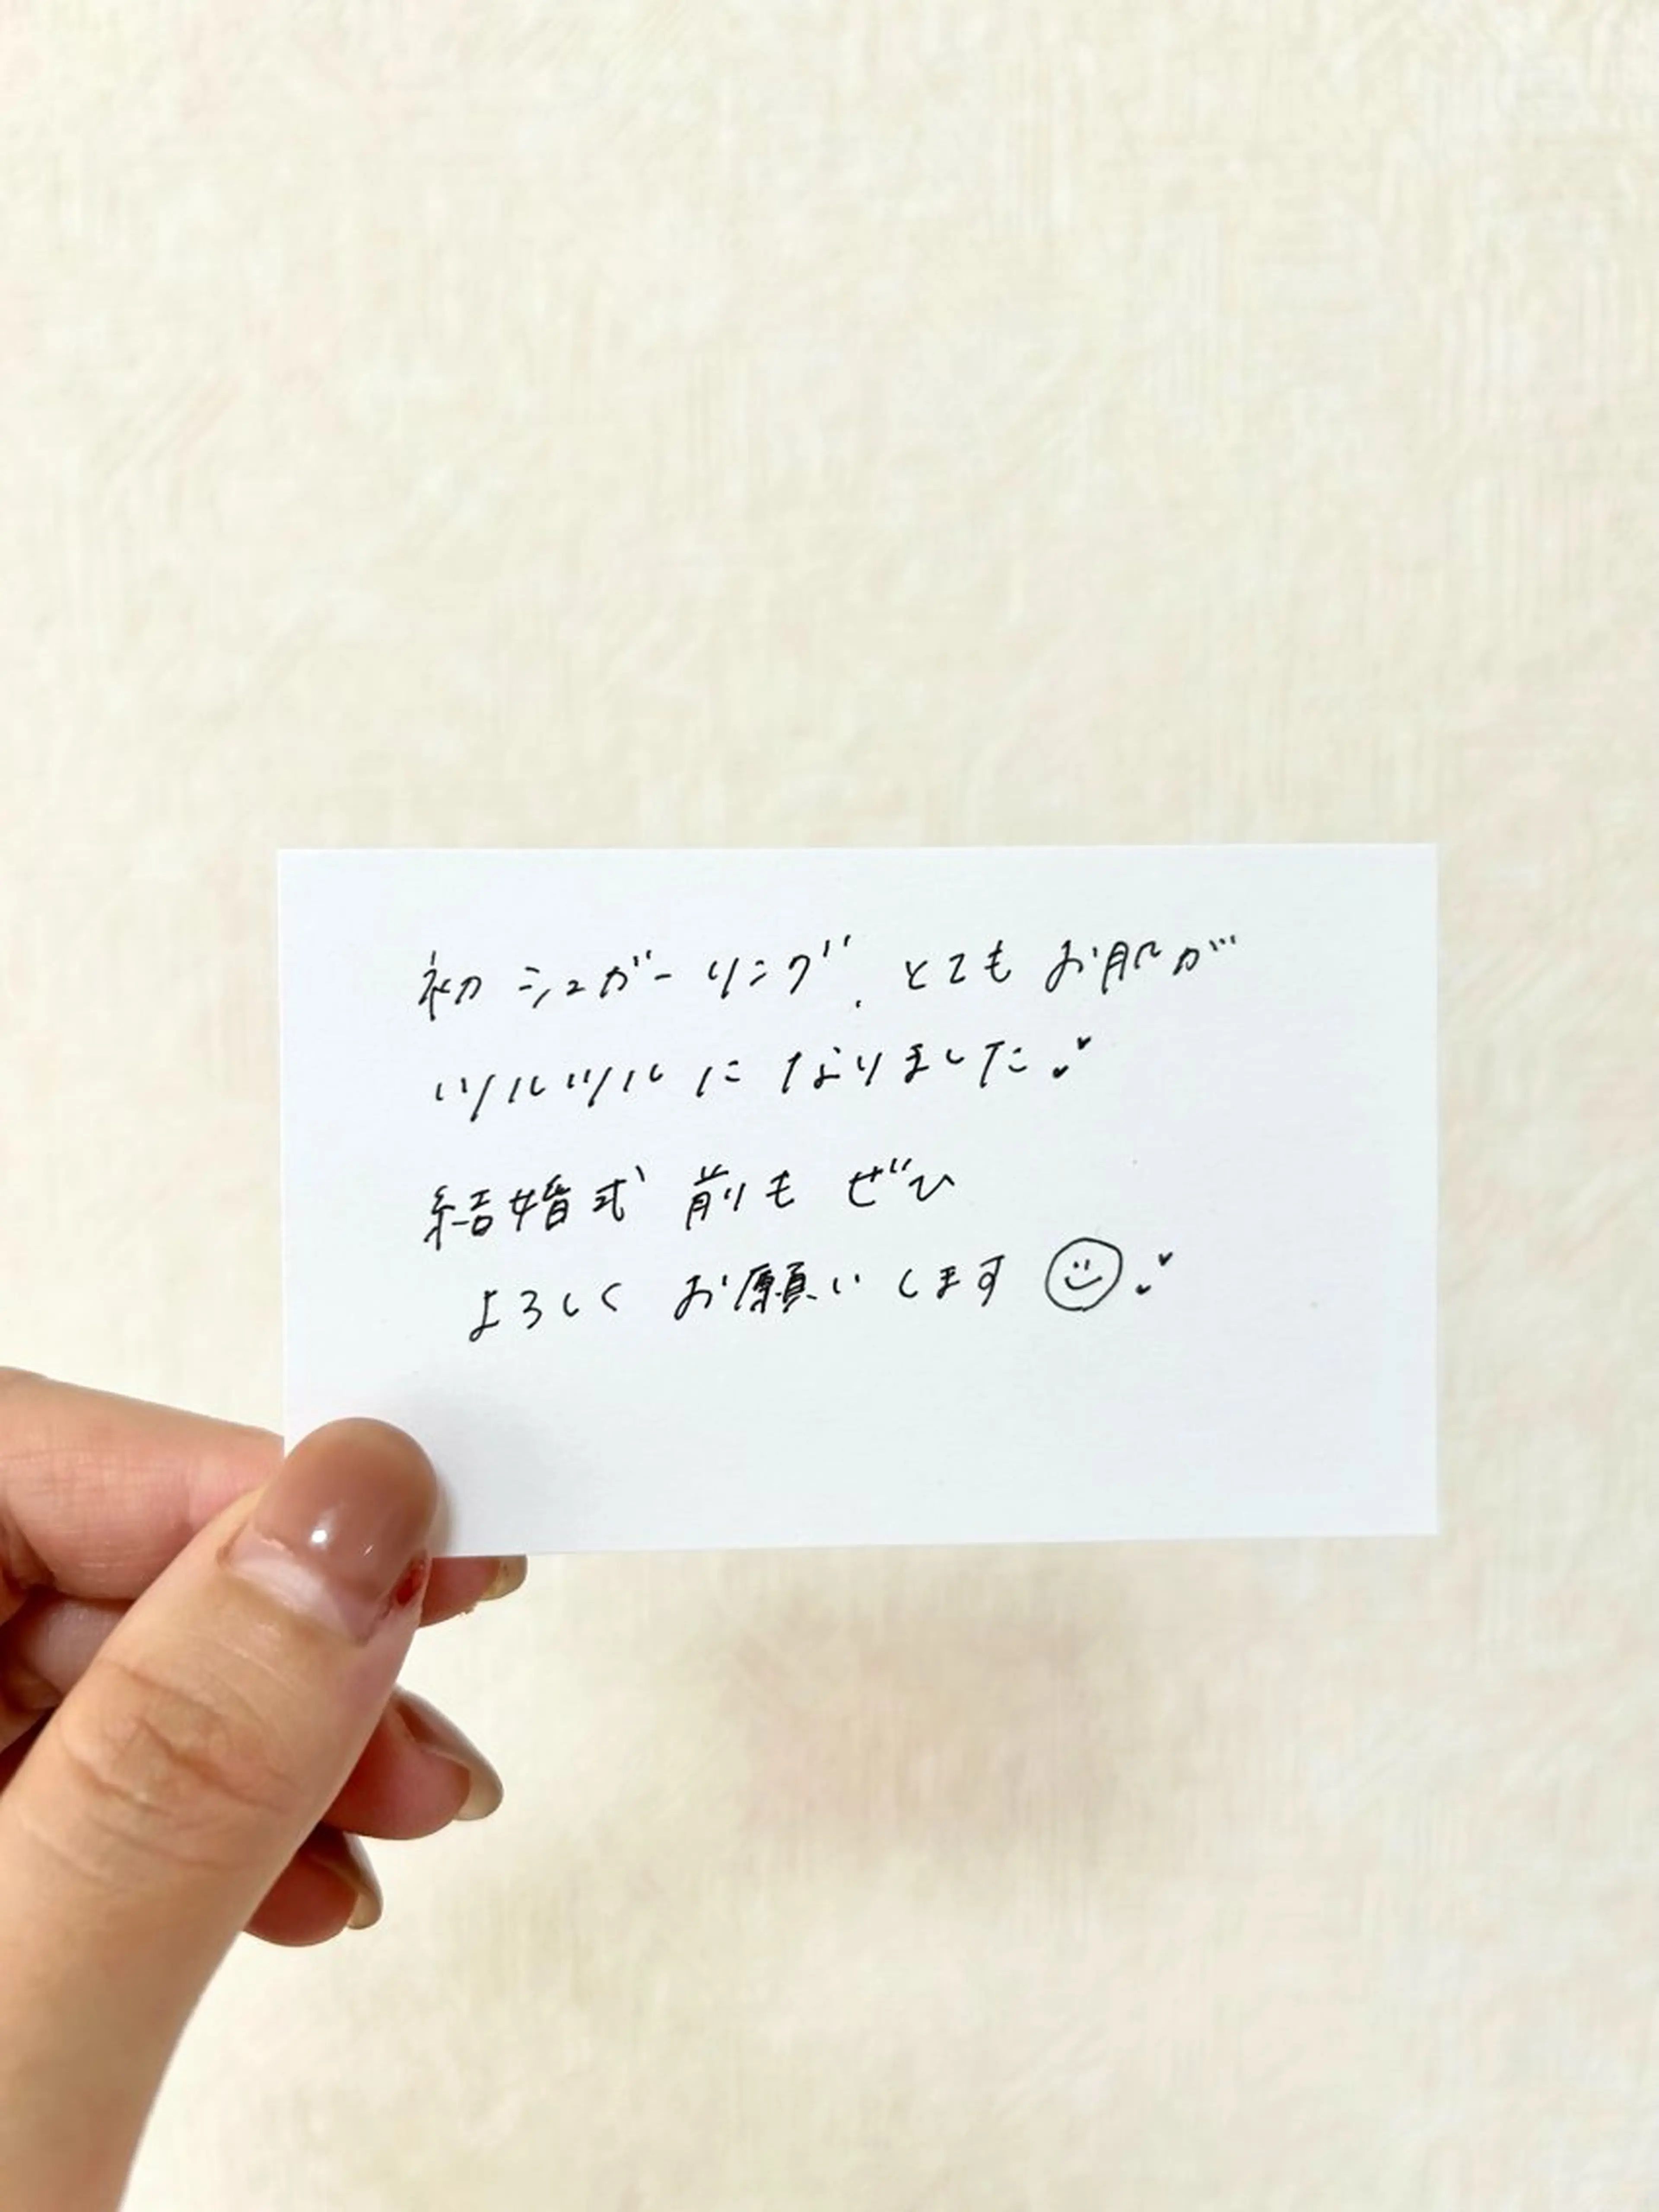 初シュガーリング、とてもお肌が
ツルツルになりました♥
結婚式前もぜひ
よろしくお願いします☺♥